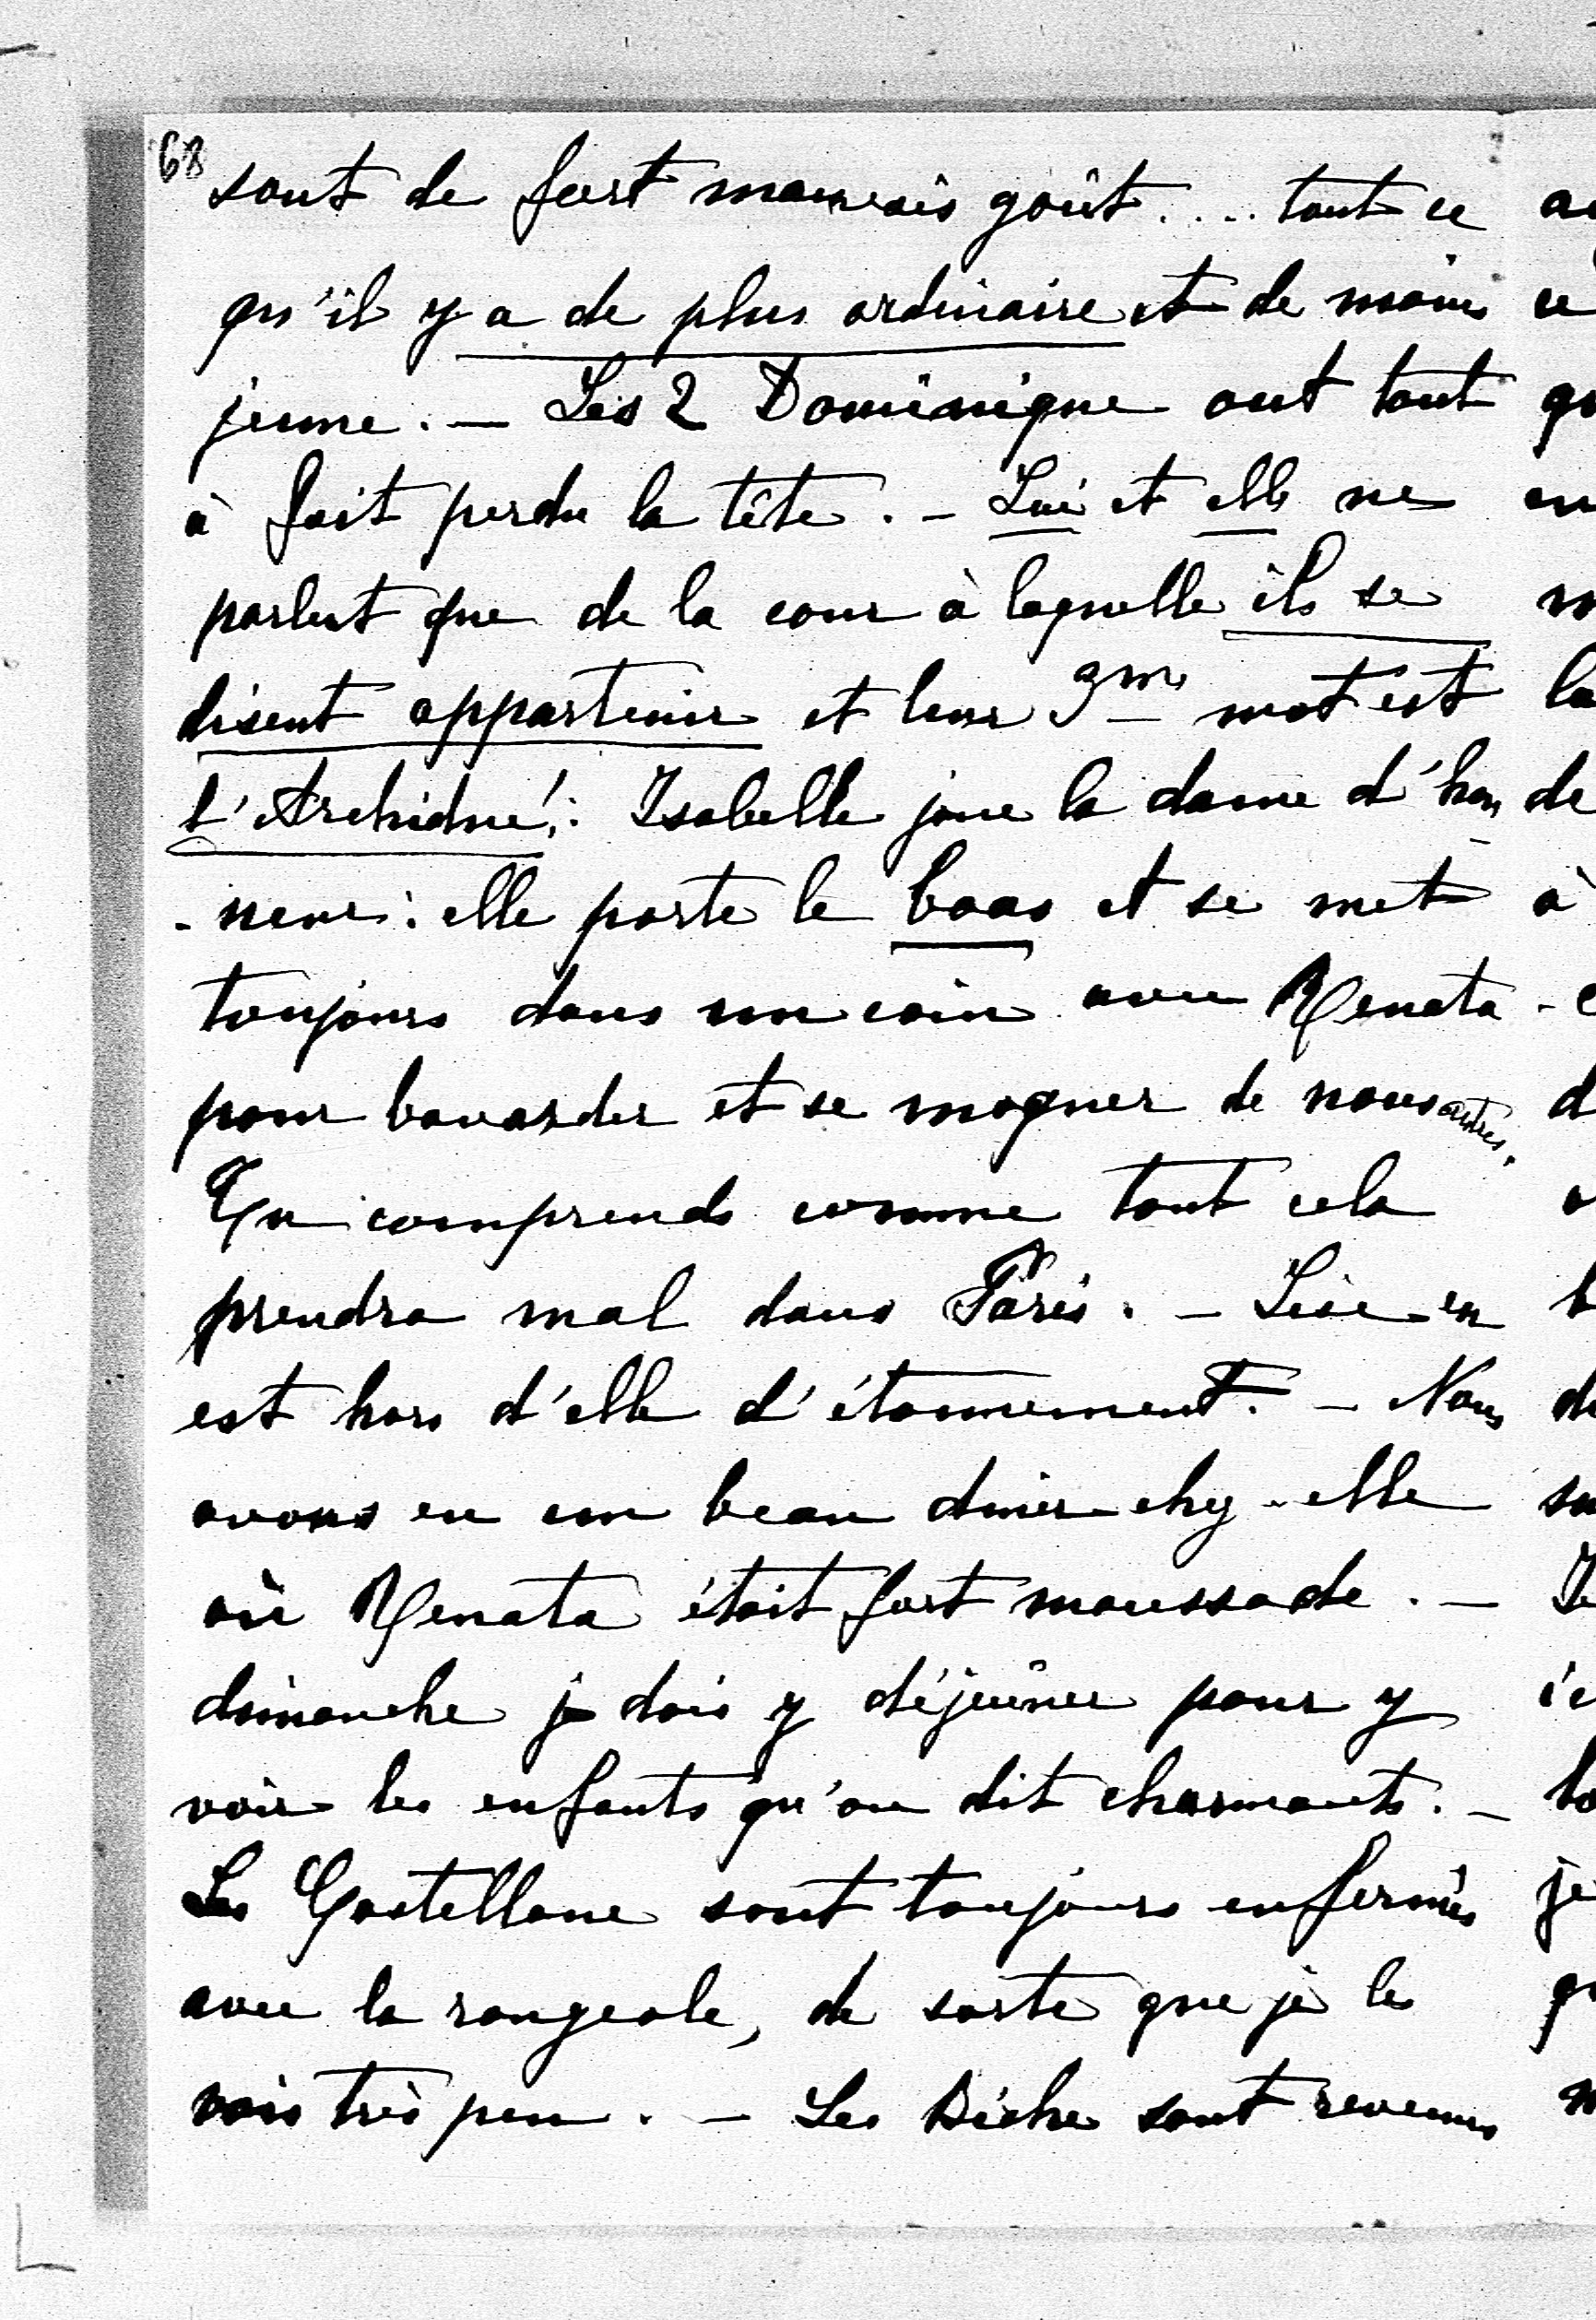 68
sont de fort mauvais goût.... tout ce
qu'il y a de plus ordinaire et de moins
jeune. — Les 2 Dominique ont tout
à fait perdu la tête. — Lui et elle ne
parlent que de la cour à laquelle ils se
disent appartenir et leur 3me mot est
l'Archiduc!: Isabelle joue la dame d'hon
-neur: elle porte le boas et se met
toujours dans un coin avec Renata -
pour bavarder et se moquer de nous autres.
Tu comprends comme tout cela
prendra mal dans Paris. — en
est hors d'elle d'étonnement. — Nous
avons eu un beau diner chez elle
où Renata était fort maussade. —
dimanche je dois y déjeûner pour y
voir les enfants qu'on dit charmants. —
Les Castellane sont toujours enfermés
avec la rougeole, de sorte que je les
vois très peu. — Les sont revenus